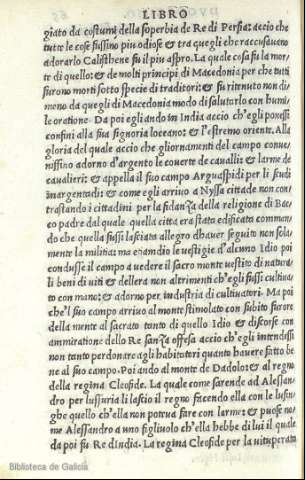 LIBRO
giato da costumi della soperbia de Re di Persia: accio che
tutte le cose fussino piu odiose & tra quegli che raccusauano
adorarlo Calisthene fu il piu aspro. La quale cosa fu la mor
te di quello: & de molti principi di Macedonia per che tutti
furono morti sotto specie di traditori: & fu ritenuto non di
meno da quegli di Macedonia modo di salutarlo con humi
le oratione. Da poi egli ando in India accio ch'egli ponessi
confini alla sua signoria loceano: & l'estremo oriente. Alla
gloria del quale accio che gliornamenti del campo conue
nissino adorno d'argento le couerte de caualli: & larme de
caualieri: & appella il suo campo Arguaspidi per li scudi
inargentadi: & come egli arriuo a Nyssa cittade non con
trastando i cittadini per la fidanza della religione di Bac
co padre dal quale quella citta era stato edificato comman
do che quella fussi lasciata allegro dhauer seguito non sola
mente la militia: ma etiandio le vestigie d'alcuno Idio poi
condusse il campo a vedere il sacro monte vestito di natura
li beni di viti & dellera non altrimenti ch'egli fussi cultiua
to con mano: & adorno per industria di cultiuatori. Ma poi
che'l suo campo arriuo al monte stimolato con subito furore
della mente al sacrato tanto di quello Idio & discorse con
ammiratione dello Re sanza offesa accio ch'egli intendessi
non tanto perdonare agli habitatori quanto hauere fatto be
ne al suo campo. Poi ando al monte de Dadolo: & al regno
della regina Cleofide. La quale come sarende ad Alessan
dro per lussuria li lascio il regno facendo ella con le lusin
ghe quello ch'ella non potrua fare con larme: & puose no
me Alessandro a uno figliuolo ch'ella hebbe di lui il quale
da poi fu Re dIndia. La regina Cleofide per la vituperata
Biblioteca de Galicia